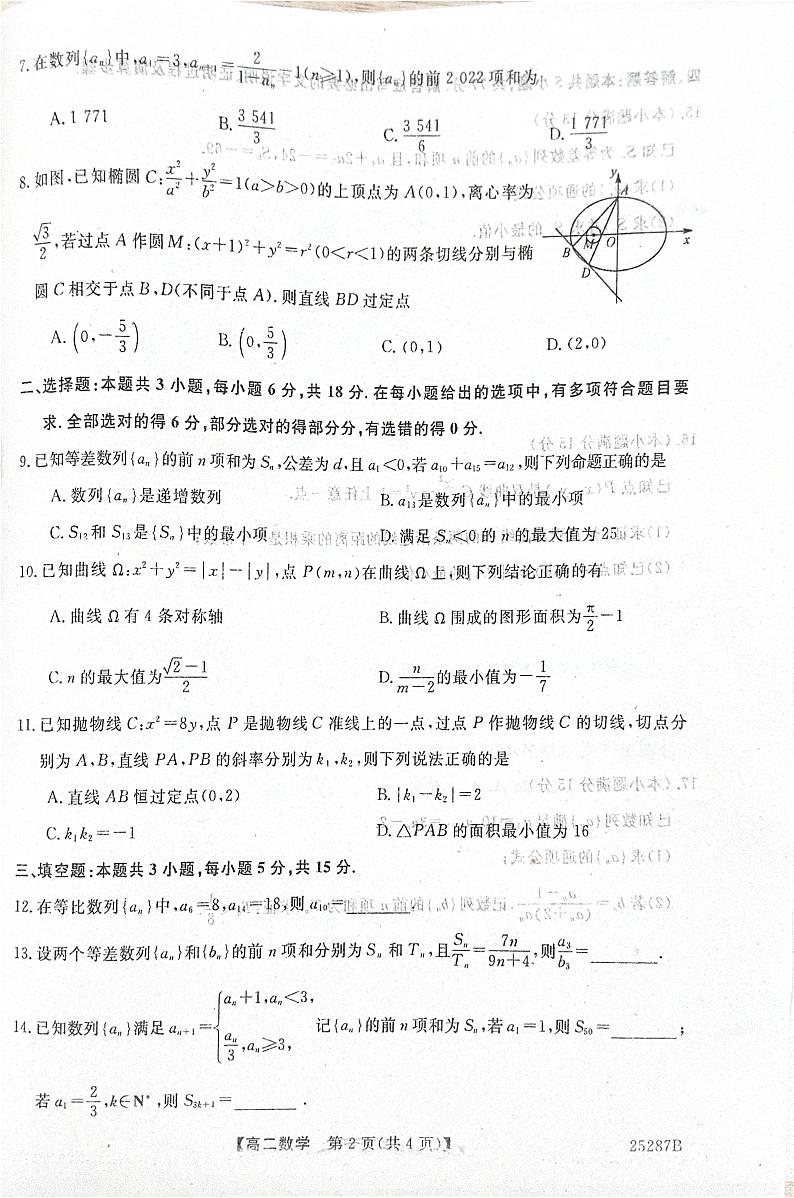 7.在数列{aₙ}中,a₁=3,aₙ₊₁=2/(1-aₙ)-1(n≥1),则{aₙ}的前2 022项和为
A.1 771 B.3 541/3 C.3 541/6 D.1 771/3
8.如图,已知椭圆C:x²/a²+y²/b²=1(a>b>0)的上顶点为A(0,1),离心率为
√3/2,若过点A作圆M:(x+1)²+y²=r²(0<r<1)的两条切线分别与椭
圆C相交于点B,D(不同于点A).则直线BD过定点
y
A
B
M
O
x
D
A.(0,-5/3) B.(0,5/3) C.(0,1) D.(2,0)
二、选择题:本题共3小题,每小题6分,共18分.在每小题给出的选项中,有多项符合题目要
求.全部选对的得6分,部分选对的得部分分,有选错的得0分.
9.已知等差数列{aₙ}的前n项和为Sₙ,公差为d,且a₁<0,若a₁₀+a₁₅=a₁₂,则下列命题正确的是
A.数列{aₙ}是递增数列 B.a₁₃是数列{aₙ}中的最小项
C.S₁₂和S₁₃是{Sₙ}中的最小项 D.满足Sₙ<0的n的最大值为25
10.已知曲线Ω:x²+y²=|x|-|y|,点P(m,n)在曲线Ω上,则下列结论正确的有
A.曲线Ω有4条对称轴 B.曲线Ω围成的图形面积为π/2-1
C.n的最大值为(√2-1)/2 D.n/(m-2)的最小值为-1/7
11.已知抛物线C:x²=8y,点P是抛物线C准线上的一点,过点P作抛物线C的切线,切点分
别为A,B,直线PA,PB的斜率分别为k₁,k₂,则下列说法正确的是
A.直线AB恒过定点(0,2) B.|k₁-k₂|=2
C.k₁k₂=-1 D.△PAB的面积最小值为16
三、填空题:本题共3小题,每小题5分,共15分.
12.在等比数列{aₙ}中,a₆=8,a₁₄=18,则a₁₀=______
13.设两个等差数列{aₙ}和{bₙ}的前n项和分别为Sₙ和Tₙ,且Sₙ/Tₙ=7n/(9n+4),则a₃/b₃=______.
14.已知数列{aₙ}满足aₙ₊₁={aₙ+1,aₙ<3, aₙ/3,aₙ≥3, 记{aₙ}的前n项和为Sₙ,若a₁=1,则S₅₀=______;
若a₁=2/3,k∈N*,则S₃ₖ₊₁=______.
【高二数学 第2页(共4页)】 25287B